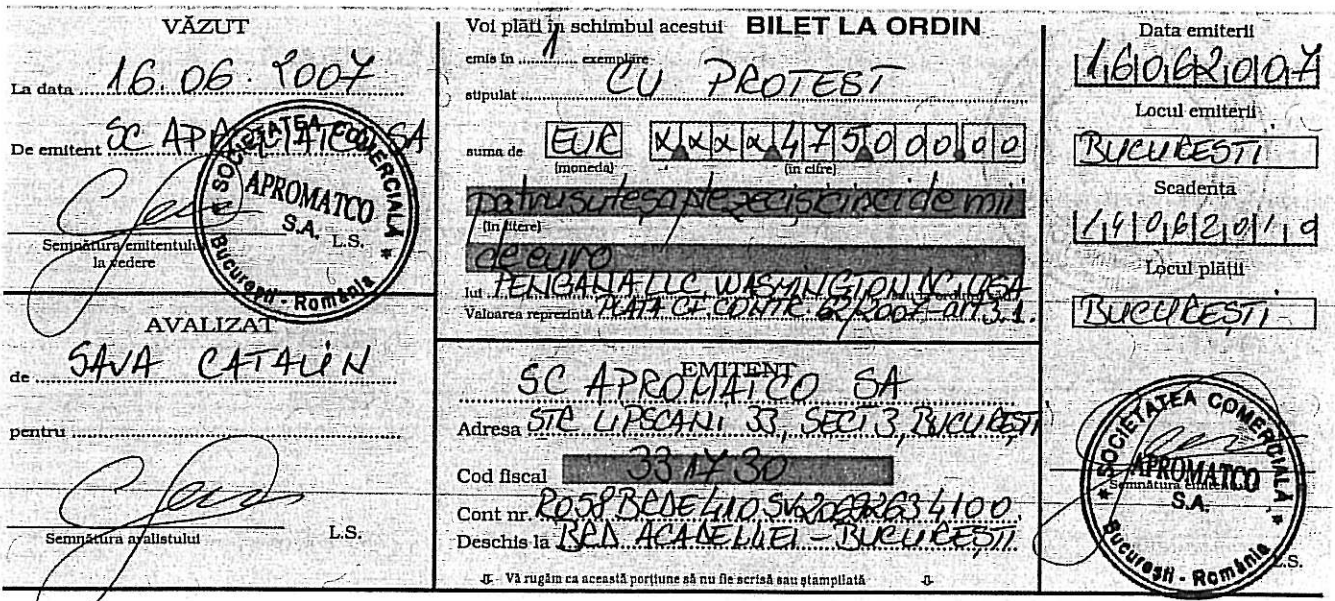 VĂZUT
La data 16.06.2007
De emitent SC APROMATCO SA
Semnătura emitentului
la vedere
L.S.
SOCIETATEA COMERCIALĂ
APROMATCO
S.A.
București - România
AVALIZAT
de SAVA CATALIN
pentru
Semnătura avalistului
L.S.
Voi plăti în schimbul acestui BILET LA ORDIN
emis în 1 exemplare
stipulat CU PROTEST
suma de EUR XXXX475.000.00
(moneda) (în cifre)
patrusuteșaptezecișicinci de mii
(în litere)
de euro
lui PENGANA LLC, WASHINGTON DC, USA
Valoarea reprezintă PLATA CF. CONTR. 62/2007-art 3.1.
EMITENT
SC APROMATCO SA
Adresa STR LIPSCANI 33, SECT 3, BUCUREȘTI
Cod fiscal 331730
Cont nr.
Deschis la BRD ACADEMIEI - BUCUREȘTI
Vă rugăm ca această porțiune să nu fie scrisă sau ștampilată
Data emiterii
16062007
Locul emiterii
BUCUREȘTI
Scadența
14062010
Locul plății
BUCUREȘTI
SOCIETATEA COMERCIALĂ
APROMATCO
Semnătura
S.A.
București - România
L.S.